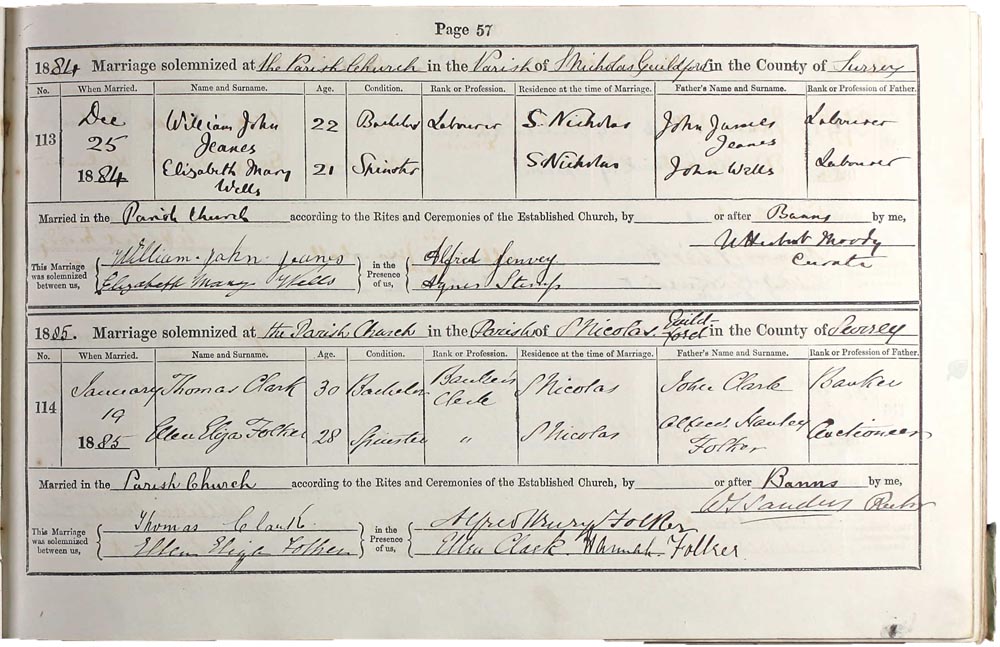 Page 57
1884 Marriage solemnized at the Parish Church in the Parish of S Nicholas Guildford in the County of Surrey
No. When Married. Name and Surname. Age. Condition. Rank or Profession. Residence at the time of Marriage. Father's Name and Surname. Rank or Profession of Father.
113 Dec 25 1884
William John Jeanes 22 Bachelor Labourer S. Nicholas John James Jeanes Labourer
Elizabeth Mary Wells 21 Spinster S. Nicholas John Wells Labourer
Married in the Parish Church according to the Rites and Ceremonies of the Established Church, by or after Banns by me,
Herbert Moody
Curate
This Marriage was solemnized between us, William John Jeanes
Elizabeth Mary Wells
in the Presence of us, Alfred Jenvey
Agnes
1885. Marriage solemnized at the Parish Church in the Parish of S Nicolas. Guildford in the County of Surrey
No. When Married. Name and Surname. Age. Condition. Rank or Profession. Residence at the time of Marriage. Father's Name and Surname. Rank or Profession of Father.
114 January 19 1885
Thomas Clark 30 Bachelor Banker's Clerk S Nicolas John Clark Banker
Ellen Eliza Folker 28 Spinster " S Nicolas Alfred Folker Auctioneer
Married in the Parish Church according to the Rites and Ceremonies of the Established Church, by or after Banns by me,
Sanders Rector
This Marriage was solemnized between us, Thomas Clark
Ellen Eliza Folker
in the Presence of us, Alfred Henry Folker
Ellen Clark. Hannah Folker